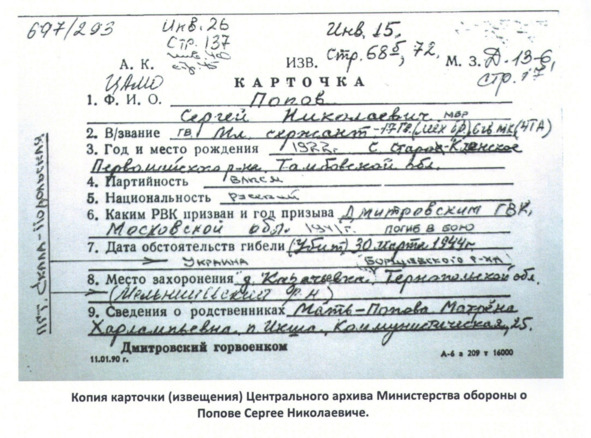 697/293 Инв. 26 Инв. 15,
Стр. 137 Стр. 68б, 72,
А. К. ИЗВ. М. З. Д. 13-6,
ЦАМО стр. 17
КАРТОЧКА
1. Ф. И. О. Попов
Сергей Николаевич
2. В/звание гв. Мл. сержант-17 гв. (мех бр) 6 гв МК (4ТА)
3. Год и место рождения 1922г. с. Старо-Кленское
Первомайского р-на Тамбовской обл.
4. Партийность ВЛКСМ
5. Национальность Русский
6. Каким РВК призван и год призыва Дмитровским ГВК,
Московской обл. 1941г. ПОГИБ В БОЮ
7. Дата обстоятельств гибели (Убит) 30 марта 1944г.
УКРАИНА БОРЩЕВСКОГО Р-НА
8. Место захоронения д. Казачевка Тернопольской обл.
(Мельницкий р-н)
9. Сведения о родственниках Мать-Попова Матрёна
Харлампьевна, п. Икша, Коммунистическая, 25.
Дмитровский горвоенком
11.01.90 г. А-6 з 209 т 16000
ПГТ. СКАЛА-ПОДОЛЬСКАЯ
Копия карточки (извещения) Центрального архива Министерства обороны о
Попове Сергее Николаевиче.